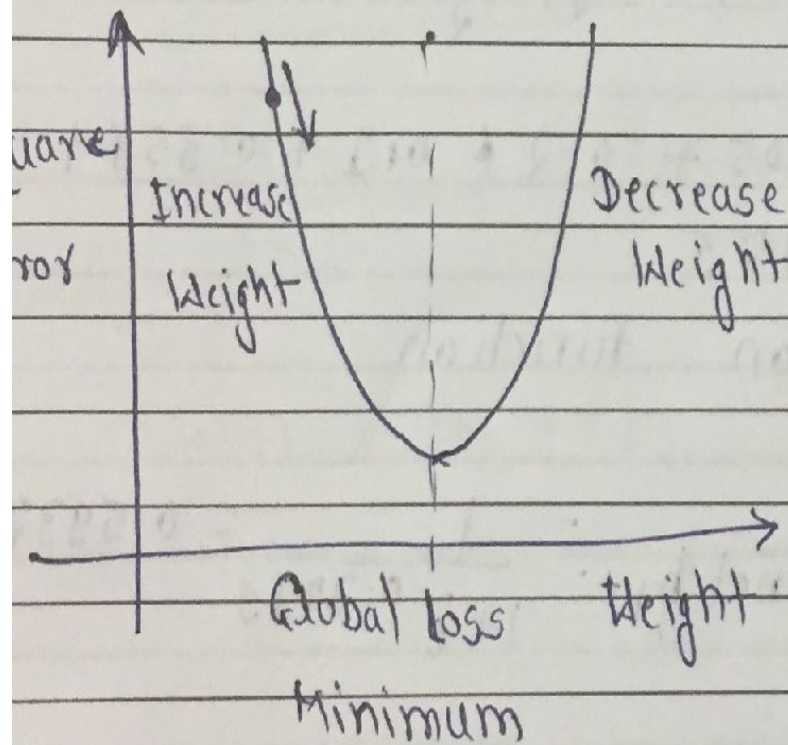 uare
ror
Increase
Weight
Decrease
Weight
Global Loss
Minimum
Weight